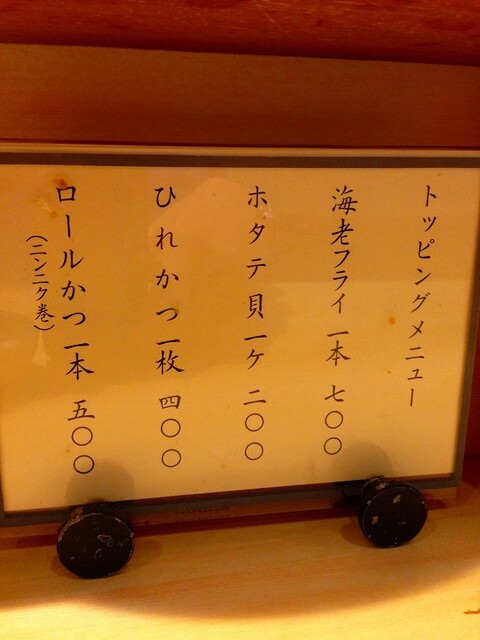 トッピングメニュー
海老フライ一本 七〇〇
ホタテ貝一ケ 二〇〇
ひれかつ一枚 四〇〇
ロールかつ一本 五〇〇
（ニンニク巻）